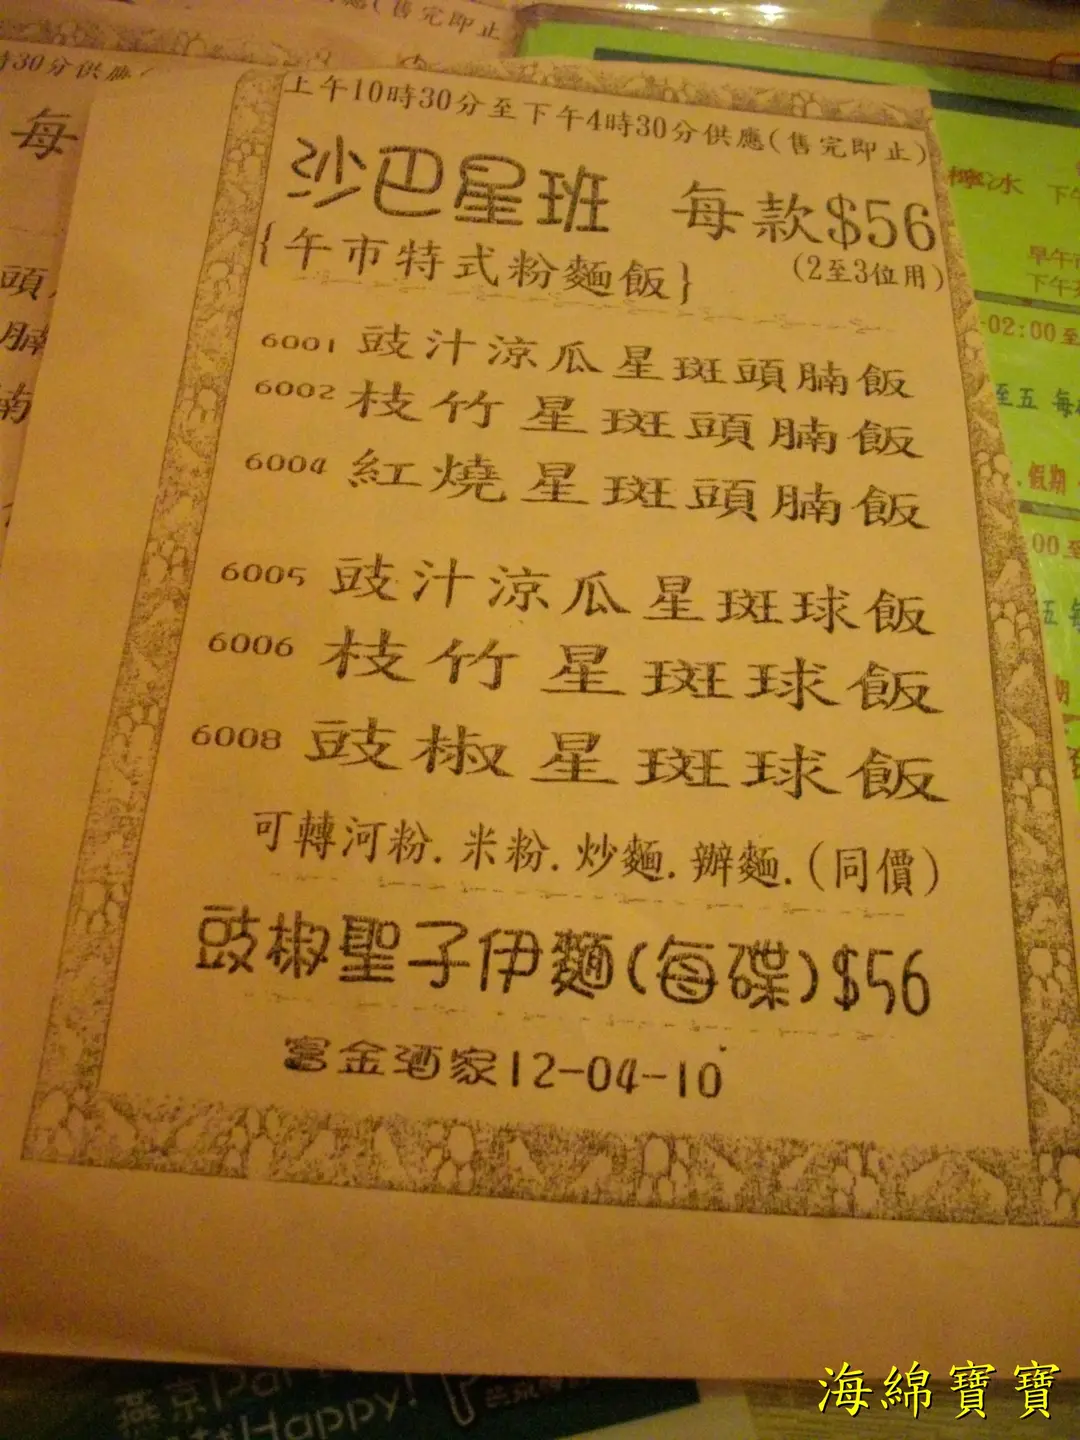 售完即止
時30分供應(
每
頭
腩
南
上午10時30分至下午4時30分供應(售完即止)
沙巴星班 每款$56
{午市特式粉麵飯} (2至3位用)
6001 豉汁涼瓜星斑頭腩飯
6002 枝竹星斑頭腩飯
6004 紅燒星斑頭腩飯
6005 豉汁涼瓜星斑球飯
6006 枝竹星斑球飯
6008 豉椒星斑球飯
可轉河粉.米粉.炒麵.辦麵.(同價)
豉椒聖子伊麵(每碟)$56
富金酒家12-04-10
檸冰 下午
早午市
下午
-02:00至
至五 每
.假期
:00至
五 每
期
燕京Par
Happy!
海綿寶寶